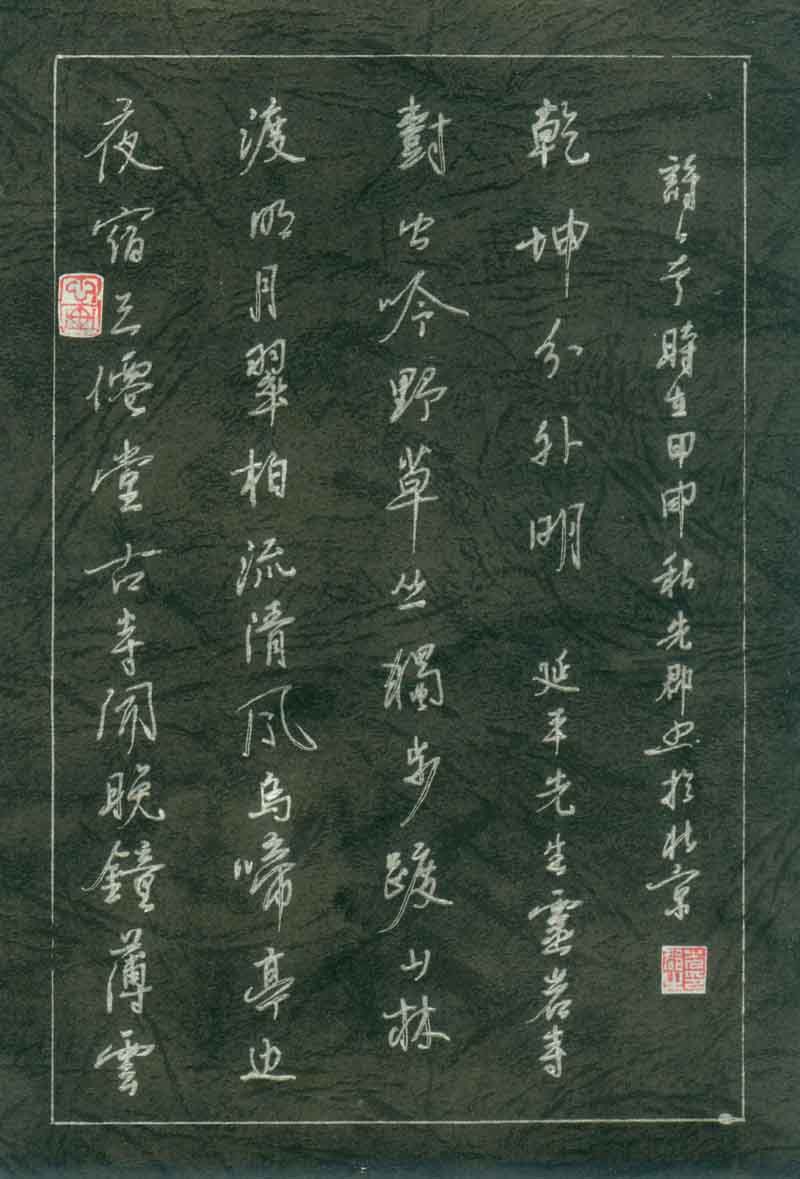 夜宿云僊堂古寺闻晚鐘薄雲
渡明月翠柏流清風烏啼亭边
樹虫吟野草丛獨步踱山林
乾坤分外明 延平先生靈岩寺
詩 時在甲申秋先郡书於北京